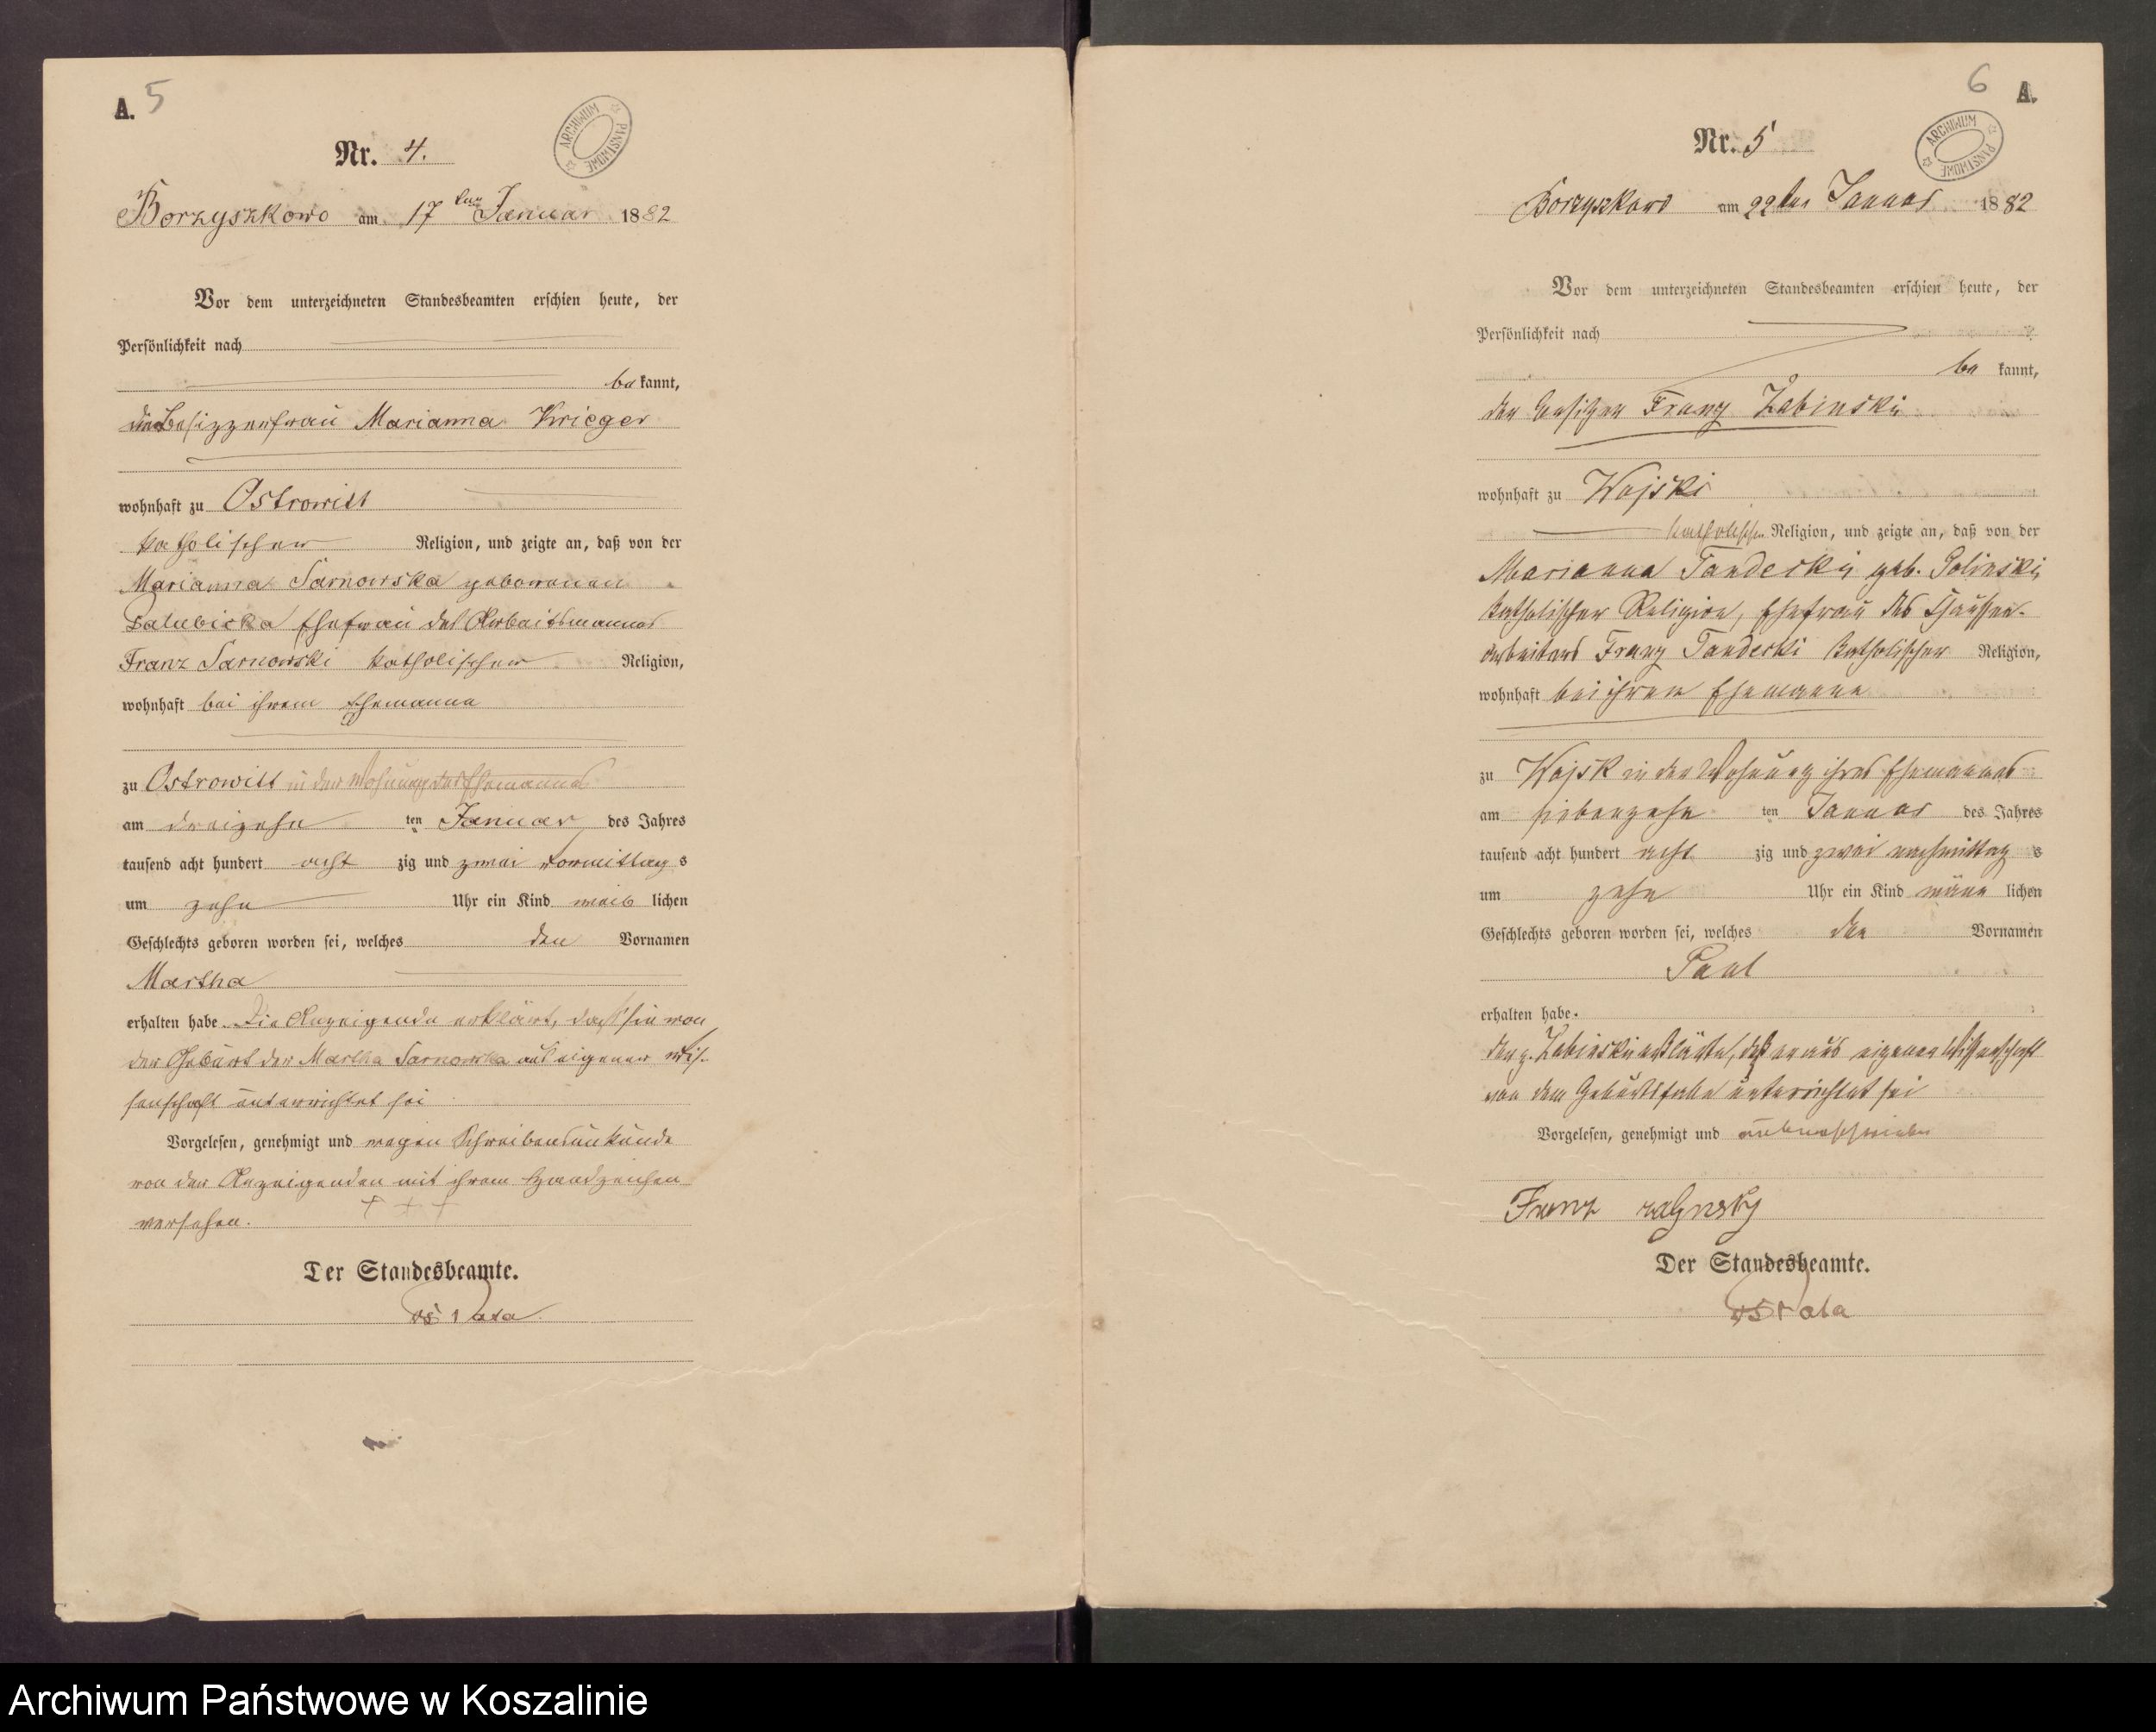 A. 5
ARCHIWUM PAŃSTWOWE
Nr. 4.
Borzyszkowo am 17 ten Januar 1882
Vor dem unterzeichneten Standesbeamten erschien heute, der
Persönlichkeit nach
be kannt,
die Besitzerfrau Marianna Krieger
wohnhaft zu Ostrowitt
katholischer Religion, und zeigte an, daß von der
Marianna Sarnowska geborenen
Palubicka Ehefrau des Arbeitsmannes
Franz Sarnowski katholischer Religion,
wohnhaft bei ihrem Ehemanne
zu Ostrowitt in der Wohnung des Ehemannes
am dreizehn ten Januar des Jahres
tausend acht hundert acht zig und zwei vormittag s
um zehn Uhr ein Kind weib lichen
Geschlechts geboren worden sei, welches den Vornamen
Martha
erhalten habe. Die Anzeigende erklärt, daß sie von
der Geburt der Martha Sarnowska aus eigener Wis-
senschaft unterrichtet sei
Vorgelesen, genehmigt und wegen Schreibensunkunde
von der Anzeigenden mit ihrem Handzeichen
versehen. + + +
Der Standesbeamte.
6 A.
ARCHIWUM PAŃSTWOWE
Nr. 5
Borzyszkowo am 22ten Januar 1882
Vor dem unterzeichneten Standesbeamten erschien heute, der
Persönlichkeit nach
be kannt,
der Besitzer Franz Żabinski
wohnhaft zu Wojsk
katholischer Religion, und zeigte an, daß von der
Marianna Tandecki geb. Golinski
katholischer Religion, Ehefrau des Chaussee-
arbeiters Franz Tandecki katholischer Religion,
wohnhaft bei ihrem Ehemanne
zu Wojsk in der Wohnung ihres Ehemannes
am siebenzehn ten Januar des Jahres
tausend acht hundert acht zig und zwei nachmittag s
um zehn Uhr ein Kind männ lichen
Geschlechts geboren worden sei, welches den Vornamen
Paul
erhalten habe.
der p. Zabinski erklärte, daß er aus eigener Wissenschaft
von dem Geburtsfalle unterrichtet sei
Vorgelesen, genehmigt und unterschrieben
Franz
Der Standesbeamte.
Archiwum Państwowe w Koszalinie